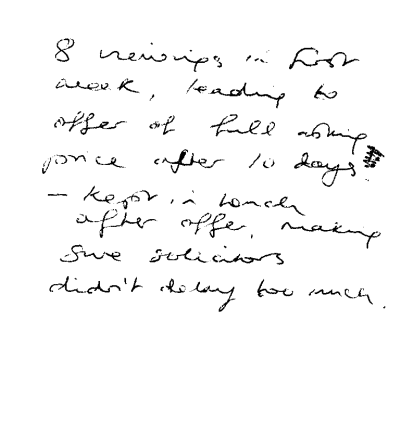 8 viewings in first
week, leading to
offer of full asking
price after 10 days.
- Kept in touch
after offer, making
sure solicitors
didn't delay too much.